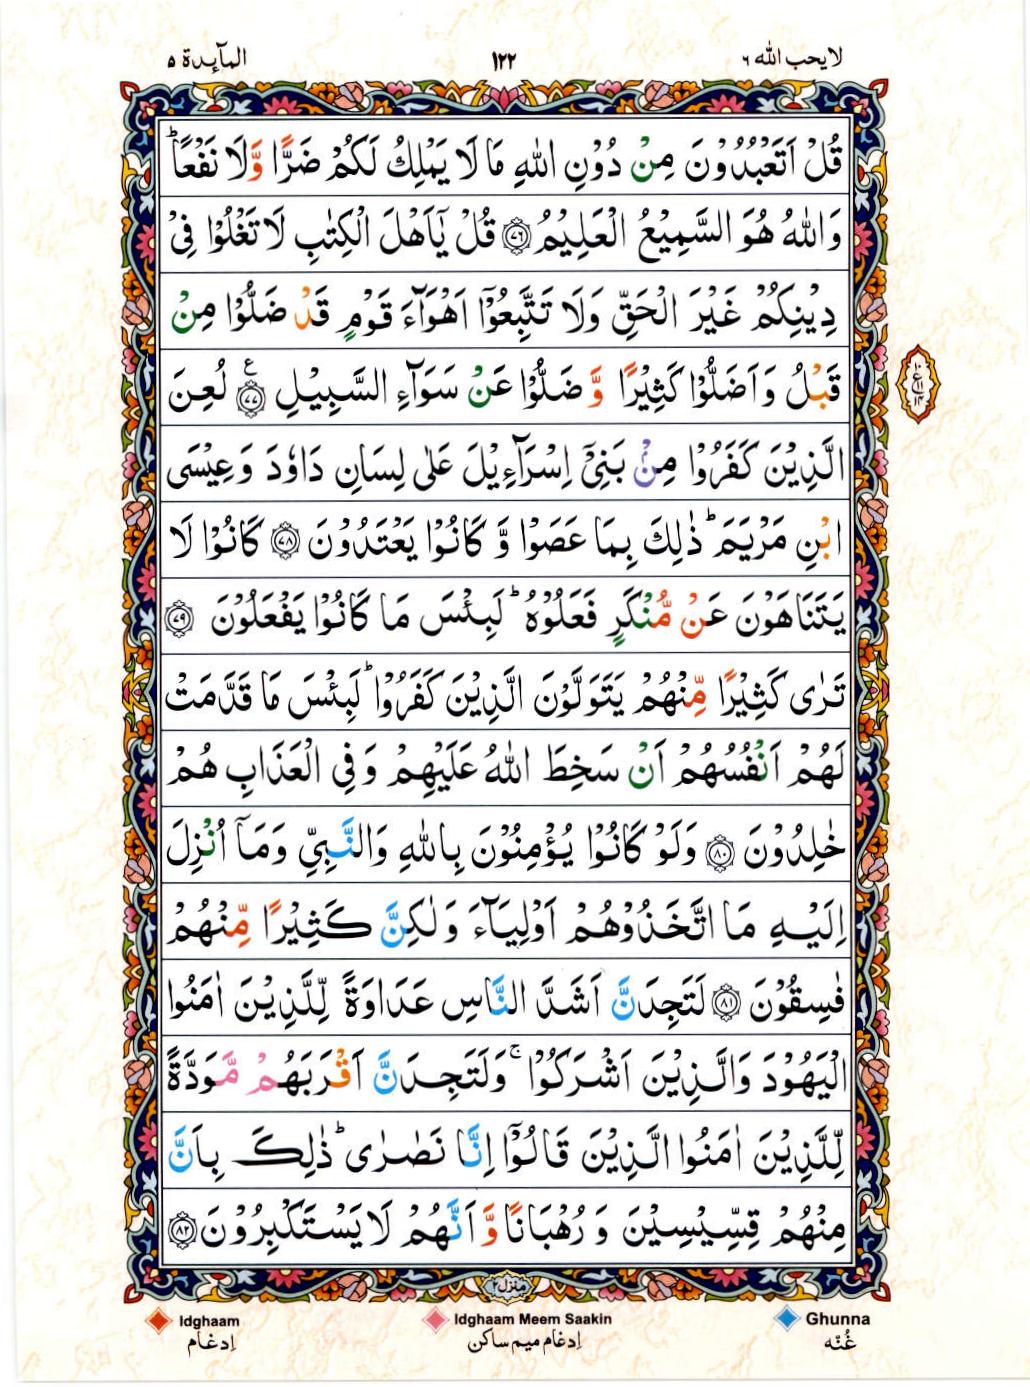 لا يحب الله ٦
١٢٢
المآىِٕدة ٥
قُلْ اَتَعْبُدُوْنَ مِنْ دُوْنِ اللّٰهِ مَا لَا يَمْلِكُ لَكُمْ ضَرًّا وَّلَا نَفْعًا ؕ
وَاللّٰهُ هُوَ السَّمِيْعُ الْعَلِيْمُ ﴿٧٦﴾ قُلْ يٰۤاَهْلَ الْكِتٰبِ لَا تَغْلُوْا فِيْ
دِيْنِكُمْ غَيْرَ الْحَقِّ وَلَا تَتَّبِعُوْۤا اَهْوَآءَ قَوْمٍ قَدْ ضَلُّوْا مِنْ
قَبْلُ وَاَضَلُّوْا كَثِيْرًا وَّ ضَلُّوْا عَنْ سَوَآءِ السَّبِيْلِ ﴿٧٧﴾ ع لُعِنَ
الَّذِيْنَ كَفَرُوْا مِنْۢ بَنِيْۤ اِسْرَآءِيْلَ عَلٰى لِسَانِ دَاوٗدَ وَعِيْسَى
ابْنِ مَرْيَمَ ؕ ذٰلِكَ بِمَا عَصَوْا وَّ كَانُوْا يَعْتَدُوْنَ ﴿٧٨﴾ كَانُوْا لَا
يَتَنَاهَوْنَ عَنْ مُّنْكَرٍ فَعَلُوْهُ ؕ لَبِئْسَ مَا كَانُوْا يَفْعَلُوْنَ ﴿٧٩﴾
تَرٰى كَثِيْرًا مِّنْهُمْ يَتَوَلَّوْنَ الَّذِيْنَ كَفَرُوْا ؕ لَبِئْسَ مَا قَدَّمَتْ
لَهُمْ اَنْفُسُهُمْ اَنْ سَخِطَ اللّٰهُ عَلَيْهِمْ وَفِي الْعَذَابِ هُمْ
خٰلِدُوْنَ ﴿٨٠﴾ وَلَوْ كَانُوْا يُؤْمِنُوْنَ بِاللّٰهِ وَالنَّبِيِّ وَمَاۤ اُنْزِلَ
اِلَيْهِ مَا اتَّخَذُوْهُمْ اَوْلِيَآءَ وَلٰكِنَّ كَثِيْرًا مِّنْهُمْ
فٰسِقُوْنَ ﴿٨١﴾ لَتَجِدَنَّ اَشَدَّ النَّاسِ عَدَاوَةً لِّلَّذِيْنَ اٰمَنُوا
الْيَهُوْدَ وَالَّذِيْنَ اَشْرَكُوْا ۚ وَلَتَجِدَنَّ اَقْرَبَهُمْ مَّوَدَّةً
لِّلَّذِيْنَ اٰمَنُوا الَّذِيْنَ قَالُوْۤا اِنَّا نَصٰرٰى ؕ ذٰلِكَ بِاَنَّ
مِنْهُمْ قِسِّيْسِيْنَ وَ رُهْبَانًا وَّ اَنَّهُمْ لَا يَسْتَكْبِرُوْنَ ﴿٨٢﴾
منزل ٢
Ghunna
غُنّه
Idghaam Meem Saakin
إدغام ميم ساكن
Idghaam
إدغام